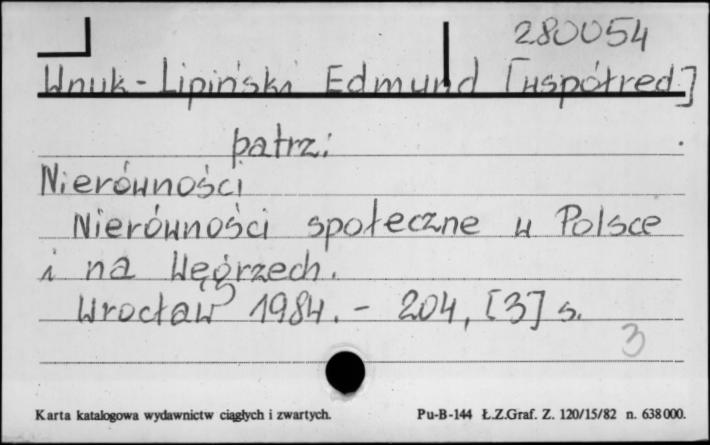 280054
Wnuk-Lipiński Edmund [współred.]
patrz:
Nierówności
Nierówności społeczne w Polsce
i na Węgrzech.
Wrocław 1984. - 204, [3] s.
3
Karta katalogowa wydawnictw ciągłych i zwartych. Pu-B-144 Ł.Z.Graf. Z. 120/15/82 n. 638000.